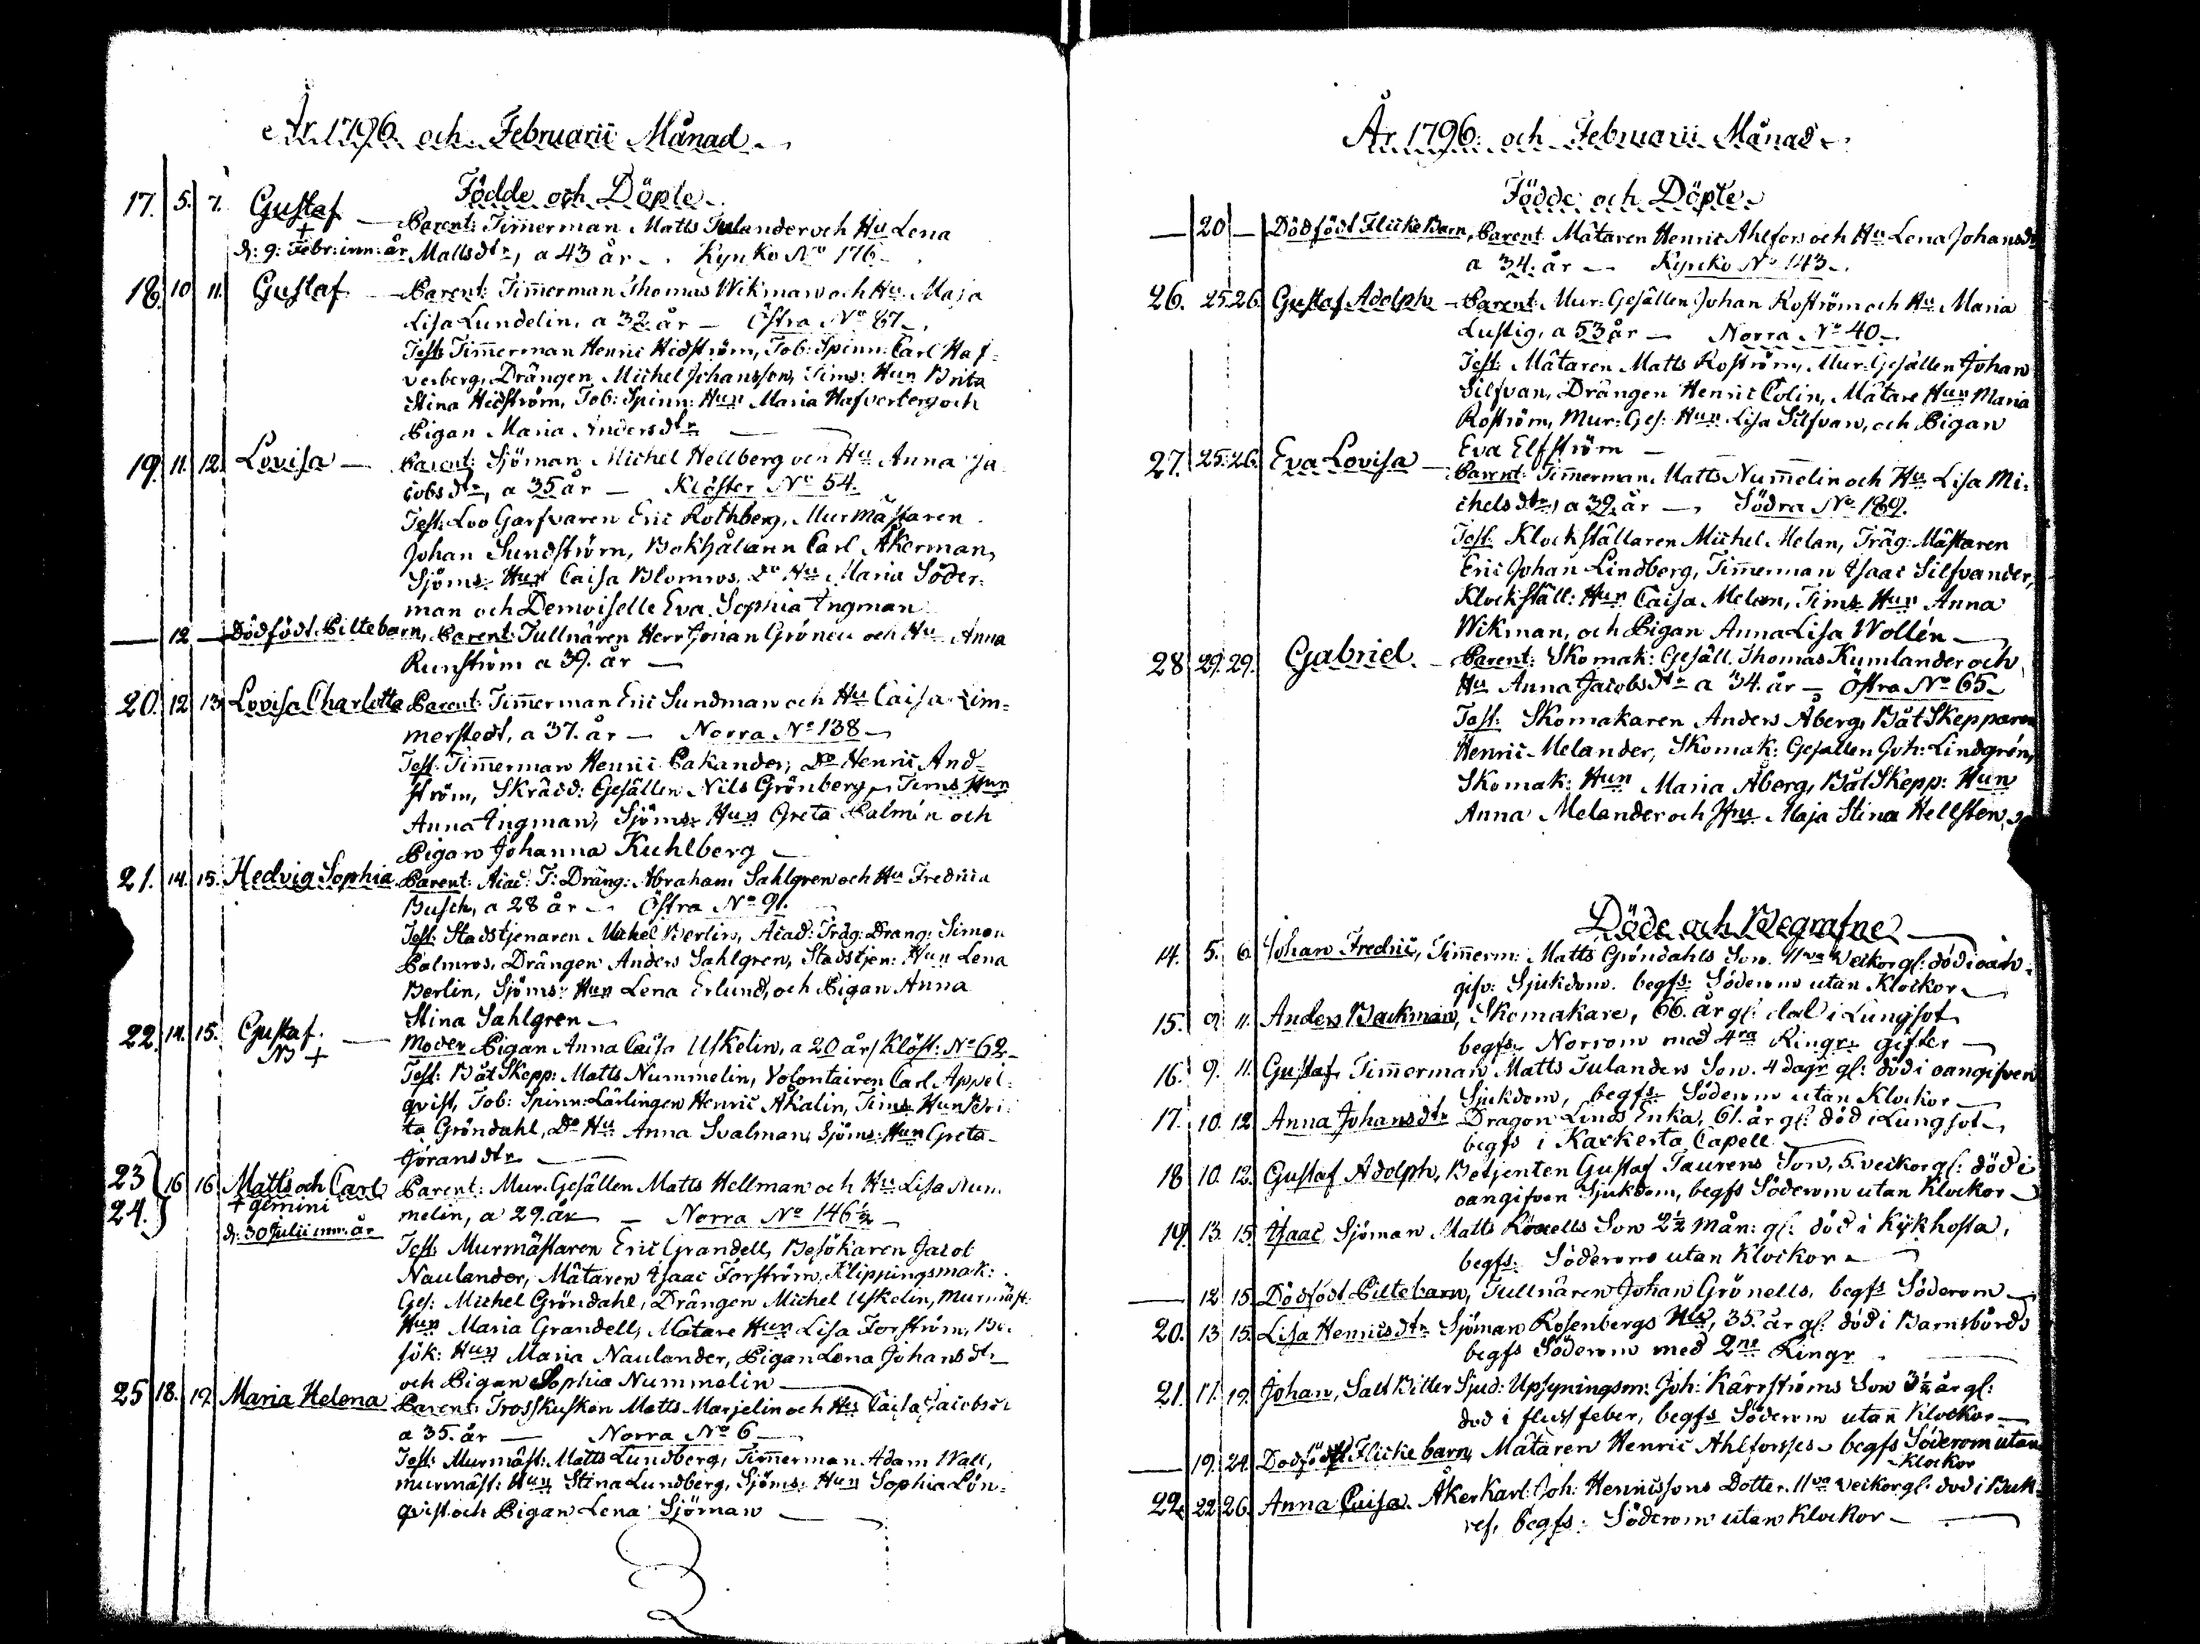 År 1796. och Februarii Månad.
Födde och Döpte.
17. 5. 7. Gustaf — Parent: Timmerman Matts Tulander och Hu Lena
+ d: 9: Febr: inn: år Mattsdtr, a 43 år — Kyrko No 176.
18. 10 11. Gustaf. — Parent: Timmerman Thomas Wikman och Hu Maja
Lisa Lundelin, a 32 år — Östra No 87.
Test: Timmerman Henric Hidström, Tob: Spinn: Carl Haf=
verberg, Drängen Michel Johansson, Tims: Hun Brita
Stina Hidström, Tob: Spinn: Hun Maria Hafverberg och
Pigan Maria Andersdtr —
19. 11. 12. Lovisa — Parent: Sjöman Michel Hellberg och Hu Anna Ja
cobsdtr, a 35 år — Klöster No 54.
Test: Loo Garfvaren Eric Rothberg, Murmästaren
Johan Sundström, Bokhålln Carl Åkerman,
Sjöms: Hun Caisa Blomros, Do Hu Maria Söder=
man och Demoiselle Eva Sophia Ingman
— 12 — Dödfödt Piltebarn, Parent: Tullnären Herr Johan Grönell och Hu Anna
Runström a 39. år —
20. 12 13 Lovisa Charlotta Parent: Timmerman Eric Sundman och Hu Caisa Lim=
merstedt, a 37. år — Norra No 138 —
Test: Timmerman Henric Pakander, Do Henric And=
ström, Skrädd: Gesällen Nils Grönberg, Tims Hun
Anna Ingman, Sjöms: Hun Greta Palmén och
Pigan Johanna Kuhlberg —
21. 14. 15. Hedvig Sophia Parent: Acad: T: Dräng: Abraham Sahlgren och Hu Fredrica
Busch, a 28 år — Östra No 91.
Test: Stadstjenaren Michel Berlin, Acad: Träg: Dräng: Simon
Palmros, Drängen Anders Sahlgren, Stadstjen: Hun Lena
Berlin, Sjöms: Hun Lena Erlund, och Pigan Anna
Stina Sahlgren —
22. 14. 15. Gustaf. — Moder Pigan Anna Caisa Uskelin, a 20 år / Klöst: No 62 —
NB + Test: Båt Skepp: Matts Nummelin, Volontairen Carl Appel=
qvist, Tob: Spinn: Lärlingen Henric Åkalin, Tims Hun Bri=
ta Gröndahl, Do Hu Anna Svalman, Sjöms: Hun Greta
Göransdtr —
23 24. 16 16 Matts och Carl Parent: Mur: Gesällen Matts Hellman och Hu Lisa Num
+ gemini melin, a 29. år — Norra No 146 1/2 —
d: 30 Julii inn: år
Test: Murmästaren Eric Grandell, Besökaren Jacob
Naulander, Mätaren Isaac Forström, Klippingsmak:
Ges: Michel Gröndahl, Drängen Michel Uskelin, Murmäst:
Hun Maria Grandell, Mätare Hun Lisa Forström, Be=
sök: Hun Maria Naulander, Pigan Lena Johansdtr
och Pigan Sophia Nummelin —
25 18. 19. Maria Helena Parent: Trosskusken Matts Marjelin och Hu Caisa Jacobsdr
a 35. år — Norra No 6 —
Test: Murmäst: Matts Lundberg, Timmerman Adam Wall,
murmäst: Hun Stina Lundberg, Sjöms: Hun Sophia Lön=
qvist och Pigan Lena Sjöman —
År 1796. och Februarii Månad.
Födde och Döpte.
— 20 — Dödfödt Flicke Barn, Parent Mätaren Henric Ahlfors och Hu Lena Johansdr
a 34. år — Kyrko No 143.
26. 25. 26. Gustaf Adolph — Parent: Mur: Gesällen Johan Koström och Hu Maria
Lustig, a 53 år — Norra No 40 —
Test: Mätaren Matts Koström, Mur: Gesällen Johan
Silfvan, Drängen Henric Colin, Mätare Hun Maria
Koström, Mur: Ges: Hun Lisa Silfvan, och Pigan
Eva Elfström —
27. 25. 26. Eva Lovisa — Parent: Timmerman Matts Nummelin och Hu Lisa Mi=
chelsdtr, a 39. år — Södra No 189.
Test: Klockställaren Michel Melan, Träg: Mästaren
Eric Johan Lindberg, Timmerman Isaac Silfvander,
Klockställ: Hun Caisa Melan, Tims Hun Anna
Wikman, och Pigan Anna Lisa Wollén —
28 29. 29. Gabriel. — Parent: Skomak: Gesäll. Thomas Kumlander och
Hu Anna Jacobsdtr a 34. år — Östra No 65 —
Test: Skomakaren Anders Åberg, Båt Skepparen
Henric Melander, Skomak: Gesällen Joh: Lindgrén,
Skomak: Hun Maria Åberg, Båt Skepp: Hun
Anna Melander och Jfru Maja Stina Hellsten
Döde och Begrafne —
14. 5. 6. Johan Fredric, Timmerm: Matts Gröndahls Son. 11va veckor gl: död i oan=
gifv: Sjukdom. begfs: Söderom utan Klockor —
15. 9. 11. Anders Backman, Skomakare, 66. år gl: död i Lungsot
begfs: Norrom med 4ra Ringr: gifter —
16. 9. 11. Gustaf Timmerman Matts Tulanders Son. 4 dagr gl: död i oangifven
Sjukdom, begfs: Söderom utan Klockor —
17. 10. 12 Anna Johansdtr Dragon Linds Enka, 61. år gl: död i Lungsot,
begfs i Karkerta Capell —
18 10. 12. Gustaf Adolph, Betjenten Gustaf Taurens Son, 5. veckor gl: död i
oangifven Sjukdom, begfs Söderom utan Klockor —
19. 13. 15. Isaac Sjöman Matts Son 2 1/2 mån: gl: död i Kikhosta,
begfs: Söderom utan Klockor —
— 12 15. Dödfödt Piltebarn, Tullnären Johan Grönells, begfs Söderom —
20. 13 15. Lisa Henricsdtr Sjöman Rosenbergs Hu, 35. år gl: död i Barnsbörd
begfs Söderom med 2ne Ringr
21. 17. 19. Johan, Salt Pitter Sjud: Upsyningsm: Joh: Kärrströms Son 3 1/2 år gl:
död i flussfeber, begfs Söderom utan Klockor —
— 19. 24. Dödfödt Flicke barn, Mätaren Henric Ahlforsses begfs Söderom utan
Klockor
22. 22 26. Anna Caisa. Åkerkarl: Joh: Henricssons Dotter. 11va veckor gl: död i Buk=
ref, begfs: Söderom utan Klockor —